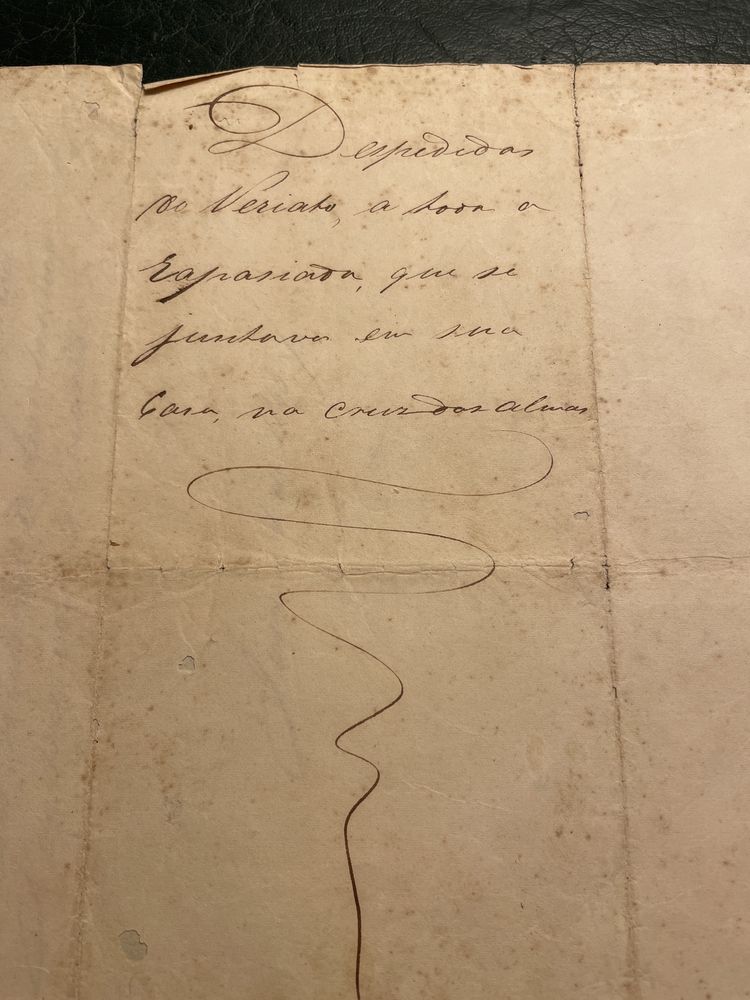 Despedidas
do Veriato, a toda a
Rapasiada, que se
juntava em sua
Casa, na Cruz das Almas